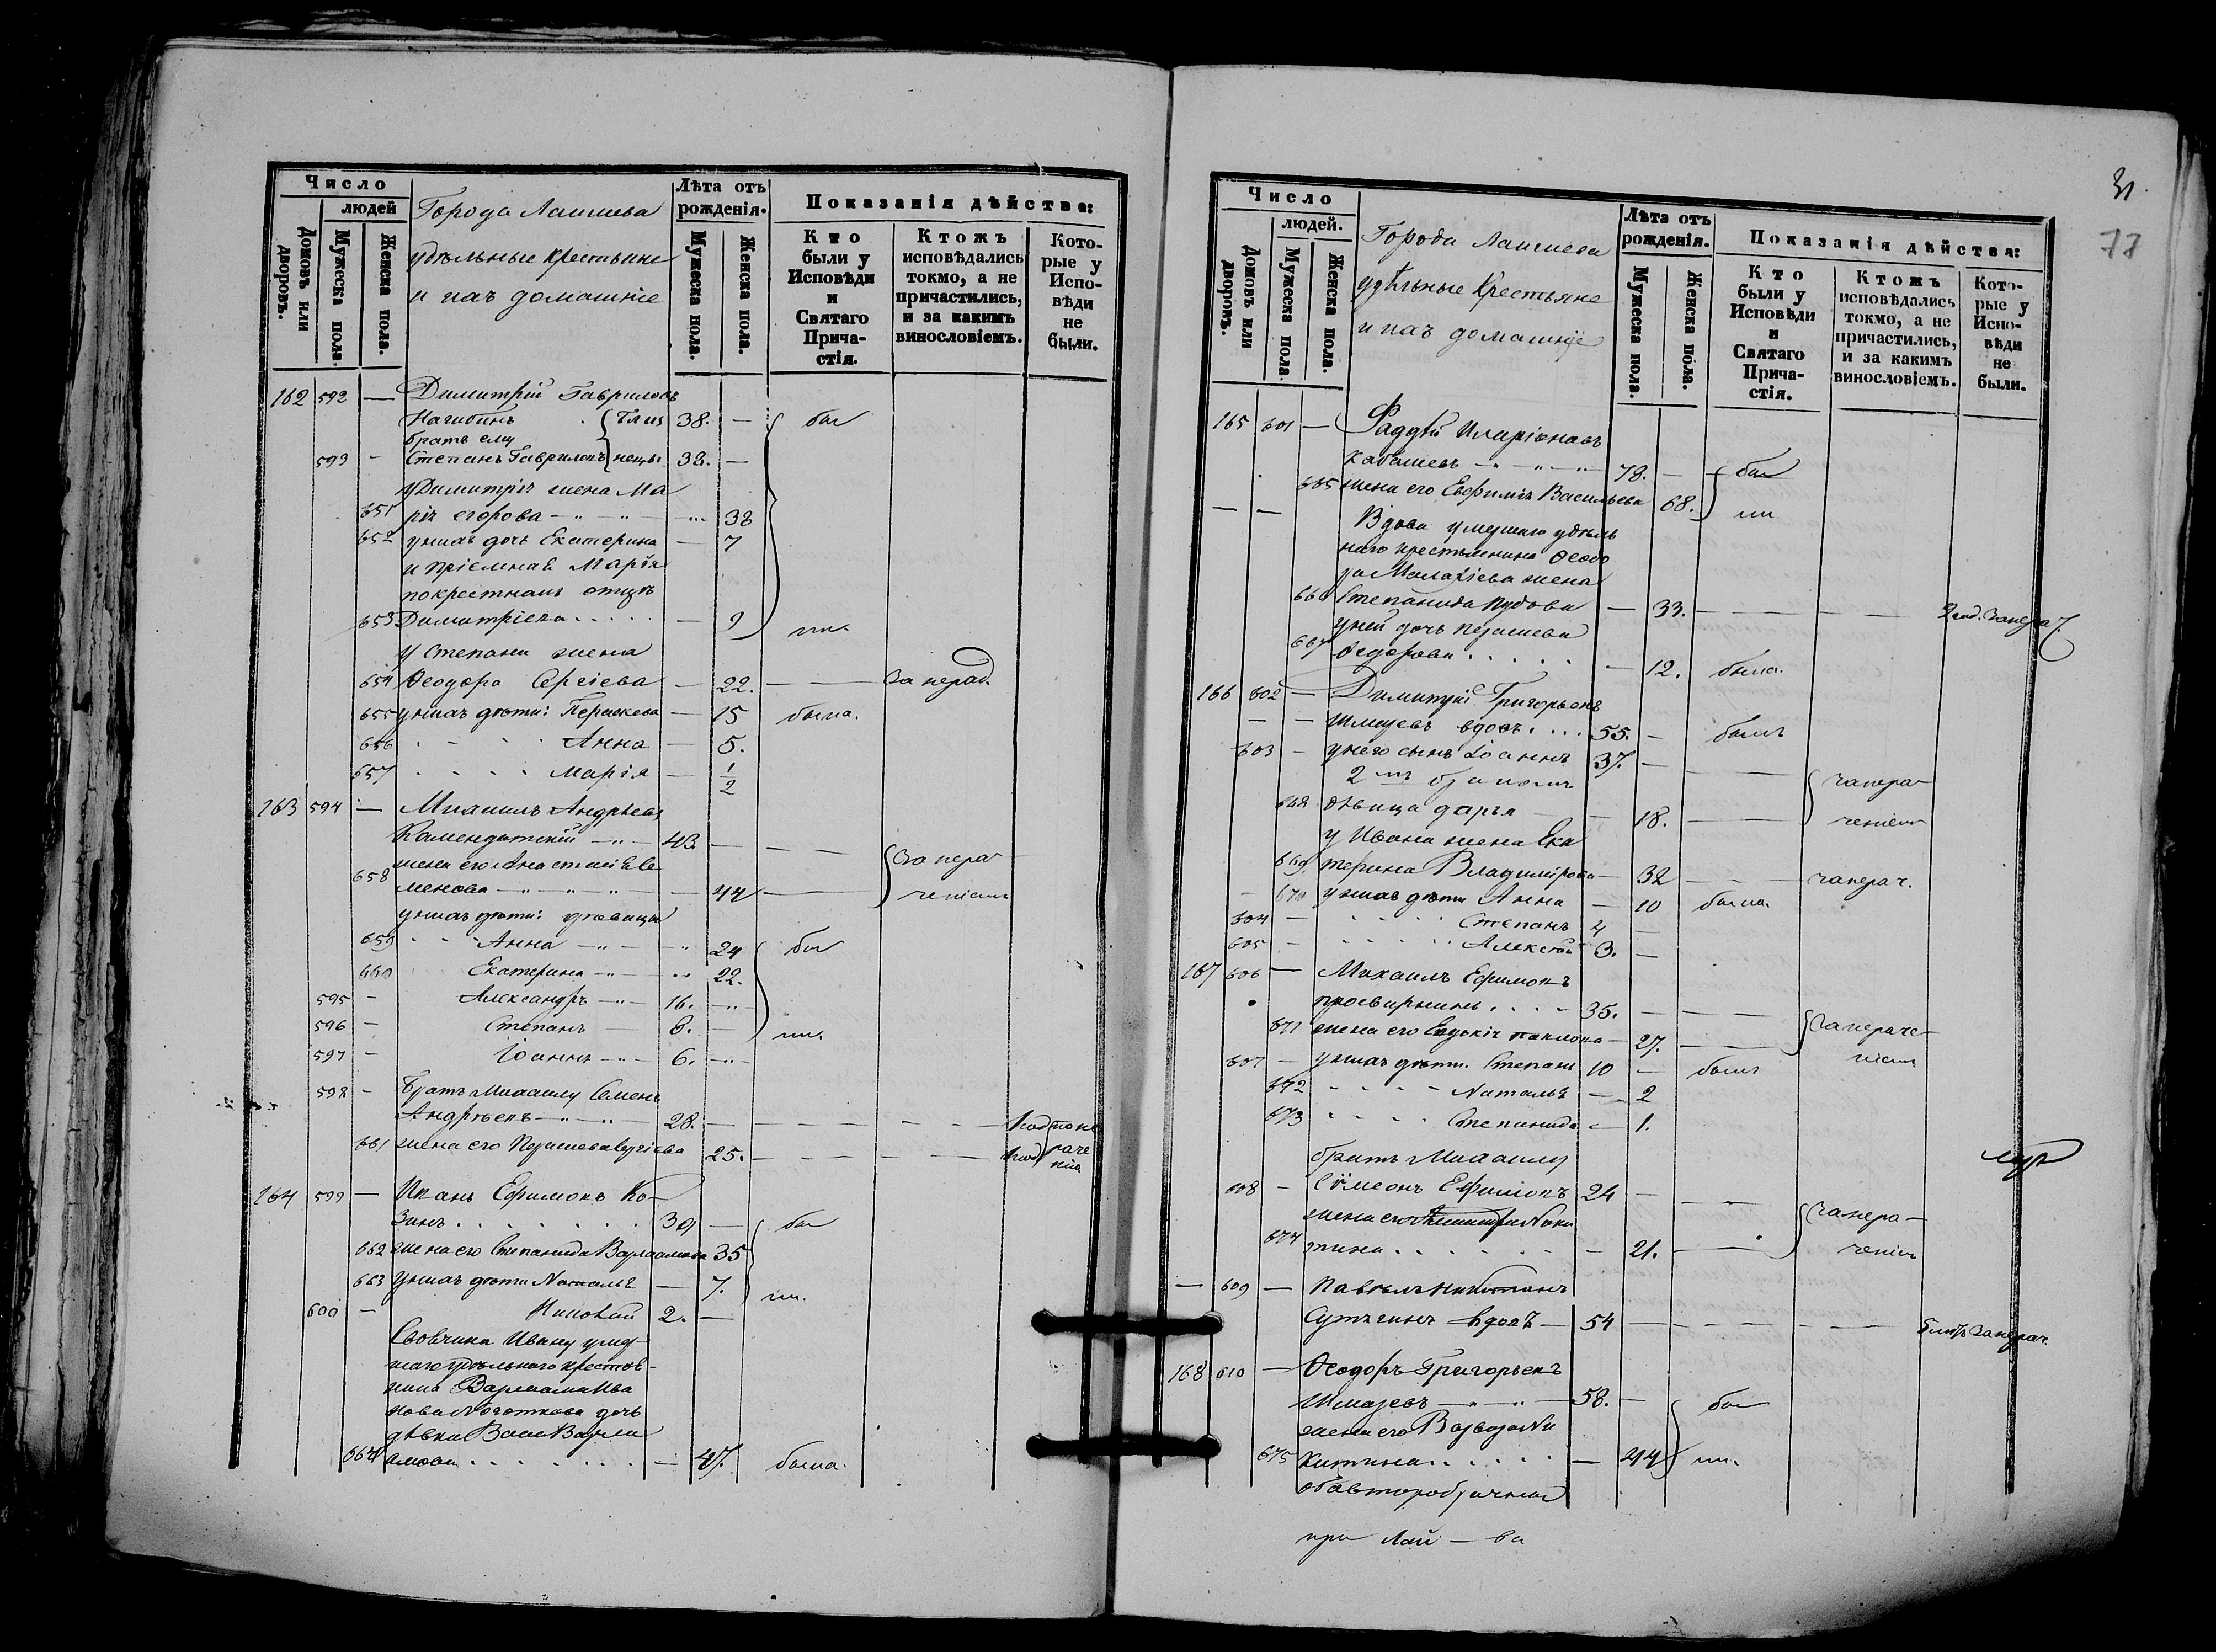 Число
людей
Домовъ или дворовъ.
Мужеска пола.
Женска пола.
Города Лаишева
удѣльные крестьяне
и ихъ домашніе
Лѣта отъ рожденія.
Мужеска пола.
Женска пола.
Показанія дѣйства:
Кто были у Исповѣди и Святаго Прича-стія.
Ктожъ исповѣдались токмо, а не причастились, и за какимъ винословіемъ.
Кото-рые у Испо-вѣди не были.
162 592 — Димитрій Гавриловъ
Нагибинъ Близ 38. — бы
братъ ему
593 - Степанъ Гавриловъ нецы 38. —
у Димитрія жена Ма
651 рія Егорова 38
652 у нихъ дочь Екатерина — 7
и пріемная Марія
по крестномъ отцѣ
653 Димитріева — 9 ли.
у Степана жена
654 Ѳеодора Сергіева — 22. — За нерад.
655 у нихъ дѣти: Параскева — 15 была.
656 Анна — 5.
657 Марія — 1/2
163 594 — Михаилъ Андреевъ
Камендатскій 43. — — За нера
жена его Анастасія Се
658 менова — 44 — ченіемъ
у нихъ дѣти: дѣвицы
659 Анна 24 бы
660 Екатерина 22.
595 - Александръ 16.
596 - Степанъ — 8. — ли.
597 - Іоаннъ 6.
598 - Братъ Михаилу Семенъ
Андреевъ 28. — 1 год по не
661 жена его Параскева Сергіева 25. — 1 год раче нію
164 599 — Иванъ Ефимовъ Ко-
зинъ 39 — бы
662 жена его Степанида Варлаамова 35
663 у нихъ дѣти Наталья — 7. ли.
600 — Николай 2. —
Своячина Ивану умер
шаго удѣльнаго крестья-
нина Варлаама Ива
нова Логоткова дочь
дѣвка Васса Варла
664 амова — 47. была.
31.
77
Число
людей.
Домовъ или дворовъ.
Мужеска пола.
Женска пола.
Города Лаишева
удѣльные крестьяне
и ихъ домашніе
Лѣта отъ рожденія.
Мужеска пола.
Женска пола.
Показанія дѣйства:
Кто были у Исповѣди и Святаго Прича-стія.
Ктожъ исповѣдались токмо, а не причастились, и за какимъ винословіемъ.
Кото-рые у Испо-вѣди не были.
165 601 — Фаддей Иларіоновъ
78. — бы
665 жена его Евфимія Васильева 68. ли
— — Вдова умершаго удѣль
наго крестьянина Ѳеодо
ра Малахіева жена
666 Степанида — 33. — — 2 год. За нерач.
у ней дочь Параскева
667 Ѳедорова — 12. была.
166 602 — Димитрій Григорьевъ
— — Шмаревъ вдовъ 55. — былъ
603 - у него сынъ Іоаннъ 37. — — за нера
2 мъ бракомъ
668 дѣвица Дарья — 18. — ченіемъ
у Ивана жена Ека
669 терина Владимірова — 32 — — за нерач.
670 у нихъ дѣти Анна — 10 была.
604 — Степанъ 4 —
605 — Алексѣй 3. —
167 606 — Михаилъ Ефимовъ
Просвирнинъ 35. — — За нераче-
671 жена его Евдокія Павлова — 27. — ніемъ
607 — у нихъ дѣти. Степанъ 10 — былъ
672 Наталья — 2
673 Степанида — 1.
братъ Михаилу
608 — Сѵмеонъ Ефимовъ 24 — — За нера —
жена его Ники
674 тина — 21. — ченіемъ
— 609 — Павелъ
Сутягинъ вдовъ — 54 — — За нерач.
168 610 — Ѳеодоръ Григорьевъ
Шмаревъ 58. — бы
жена его Варвара Ни
675 китина — 44 ли.
оба второбрачные
при Лаи — ва